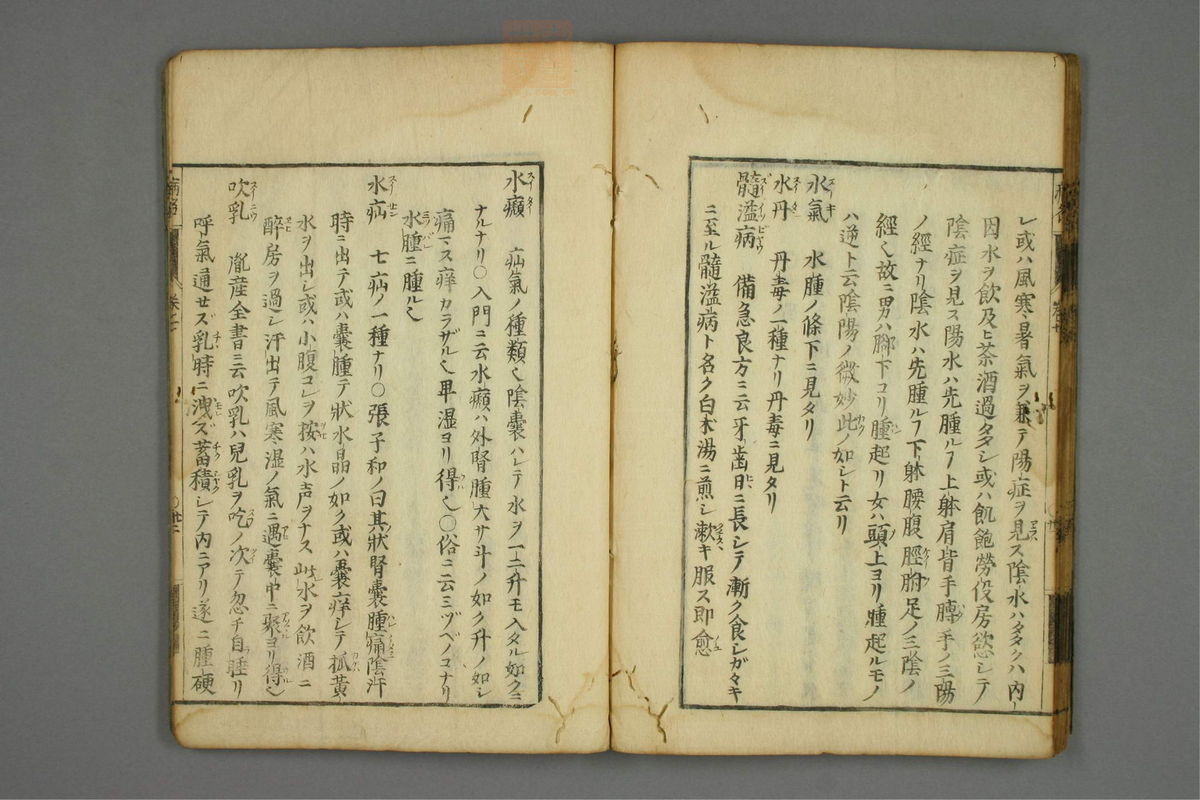 レ或ハ風寒暑氣ヲ兼テ陽症ヲ見ス陰水ハタクハ内
因水ヲ飲及ヒ茶酒過タシ或ハ飢飽勞役房慾シテ
陰症ヲ見ス陽水ハ先腫ルヿ上躰肩背手膊手ノ三陽
ノ經ナリ陰水ハ先腫ルヿ下躰腰腹脛胕足ノ三陰ノ
經也故ニ男ハ脚下ヨリ腫起リ女ハ頭上ヨリ腫起ルモノ
ハ逆ト云陰陽ノ微妙此ノ如シト云リ
水氣 水腫ノ條下ニ見タリ
水丹 丹毒ノ一種ナリ丹毒ニ見タリ
髓溢病 備急良方ニ云牙齒日ニ長シテ漸ク食シガタキ
ニ至ル髓溢病ト名ク白朮湯ニ煎シ漱キ服ス即愈
水㿗 疝氣ノ種類也陰囊ハレテ水ヲ一二升モ入タル如クニ
ナルナリ○入門ニ云水㿗ハ外腎腫大サ斗ノ如ク升ノ如シ
痛マス痒カラザル也卑湿ヨリ得也○俗ニ云ミヅヘノコナリ
水腫ニ腫ル也
水疝 七疝ノ一種ナリ○張子和ノ曰其狀腎囊腫痛陰汗
時ニ出テ或ハ囊腫テ狀水晶ノ如ク或ハ囊痒シテ抓黃
水ヲ出シ或ハ小腹コレヲ按ハ水声ヲナス此水ヲ飲酒ニ
醉房ヲ過シ汗出テ風寒湿ノ氣ニ遇囊中ニ聚ヨリ得也
吹乳 胤産全書ニ云吹乳ハ兒乳ヲ吃ノ次テ忽チ自睡リ
呼氣通セズ乳時ニ洩ズ蓄積シテ内ニアリ遂ニ腫硬